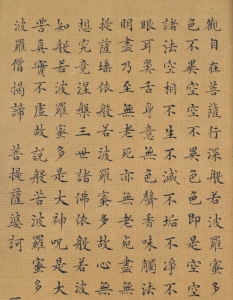 觀自在菩薩行深般若波羅蜜多
色不異空空不異色色即是空空
諸法空相不生不滅不垢不淨不
眼耳鼻舌身意無色聲香味觸法
明盡乃至無老死亦無老死盡無
提薩埵依般若波羅蜜多故心無
想究竟涅槃三世諸佛依般若波
知般若波羅蜜多是大神咒是大
苦真實不虛故說般若波羅蜜多
波羅僧揭諦 菩提薩婆訶